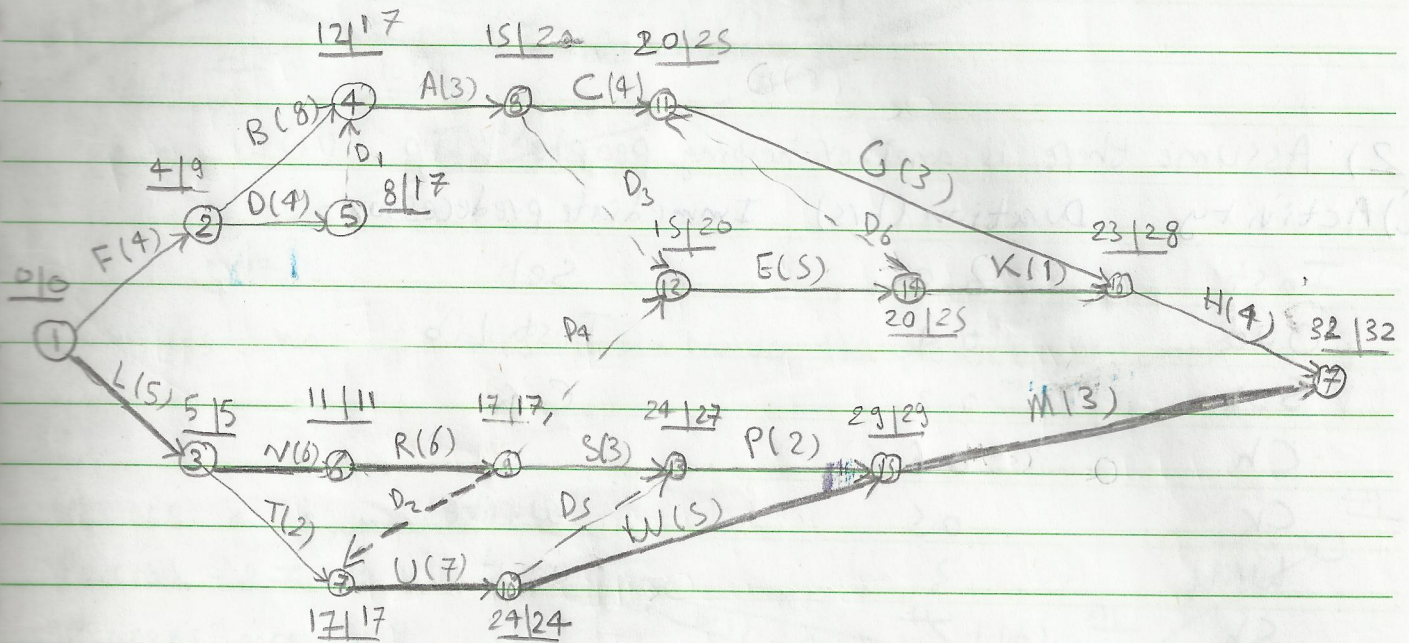 12|17 15|20 20|25
B(8) 4 A(3) 8 C(4) 11
D1
4|9 8|17 D3 G(3)
F(4) 2 D(4) 5 15|20 D6 23|28
0|0 12 E(5) 14 K(1) 16 H(4)
1 D4 20|25 32|32
L(5) 5|5 11|11 17|17 24|27 29|29 M(3) 17
3 N(6) 6 R(6) 9 S(3) 13 P(2) 15
T(2) D2 D5 W(5)
7 U(7) 10
17|17 24|24